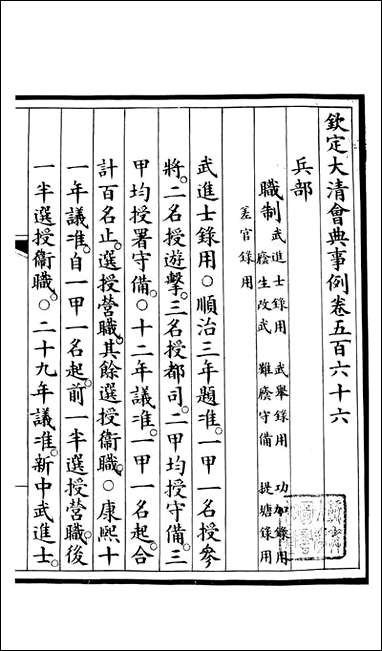 欽定大清會典事例卷五百六十六
兵部
職制 武進士錄用 武舉錄用 功加錄用
廕生改武 難廕守備 提塘錄用
差官錄用
武進士錄用○順治三年題准。一甲一名授參
將。二名授遊擊。三名授都司。二甲均授守備。三
甲均授署守備。○十二年議准。一甲一名起。合
計百名止。選授營職。其餘選授衞職。○康熙十
一年議准。自一甲一名起。前一半選授營職。後
一半選授衞職。○二十九年議准。新中武進士。